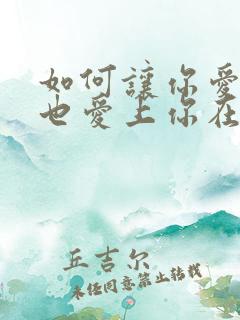 如何讓你愛
也愛上你在
丘吉尔
未经同意禁止转载